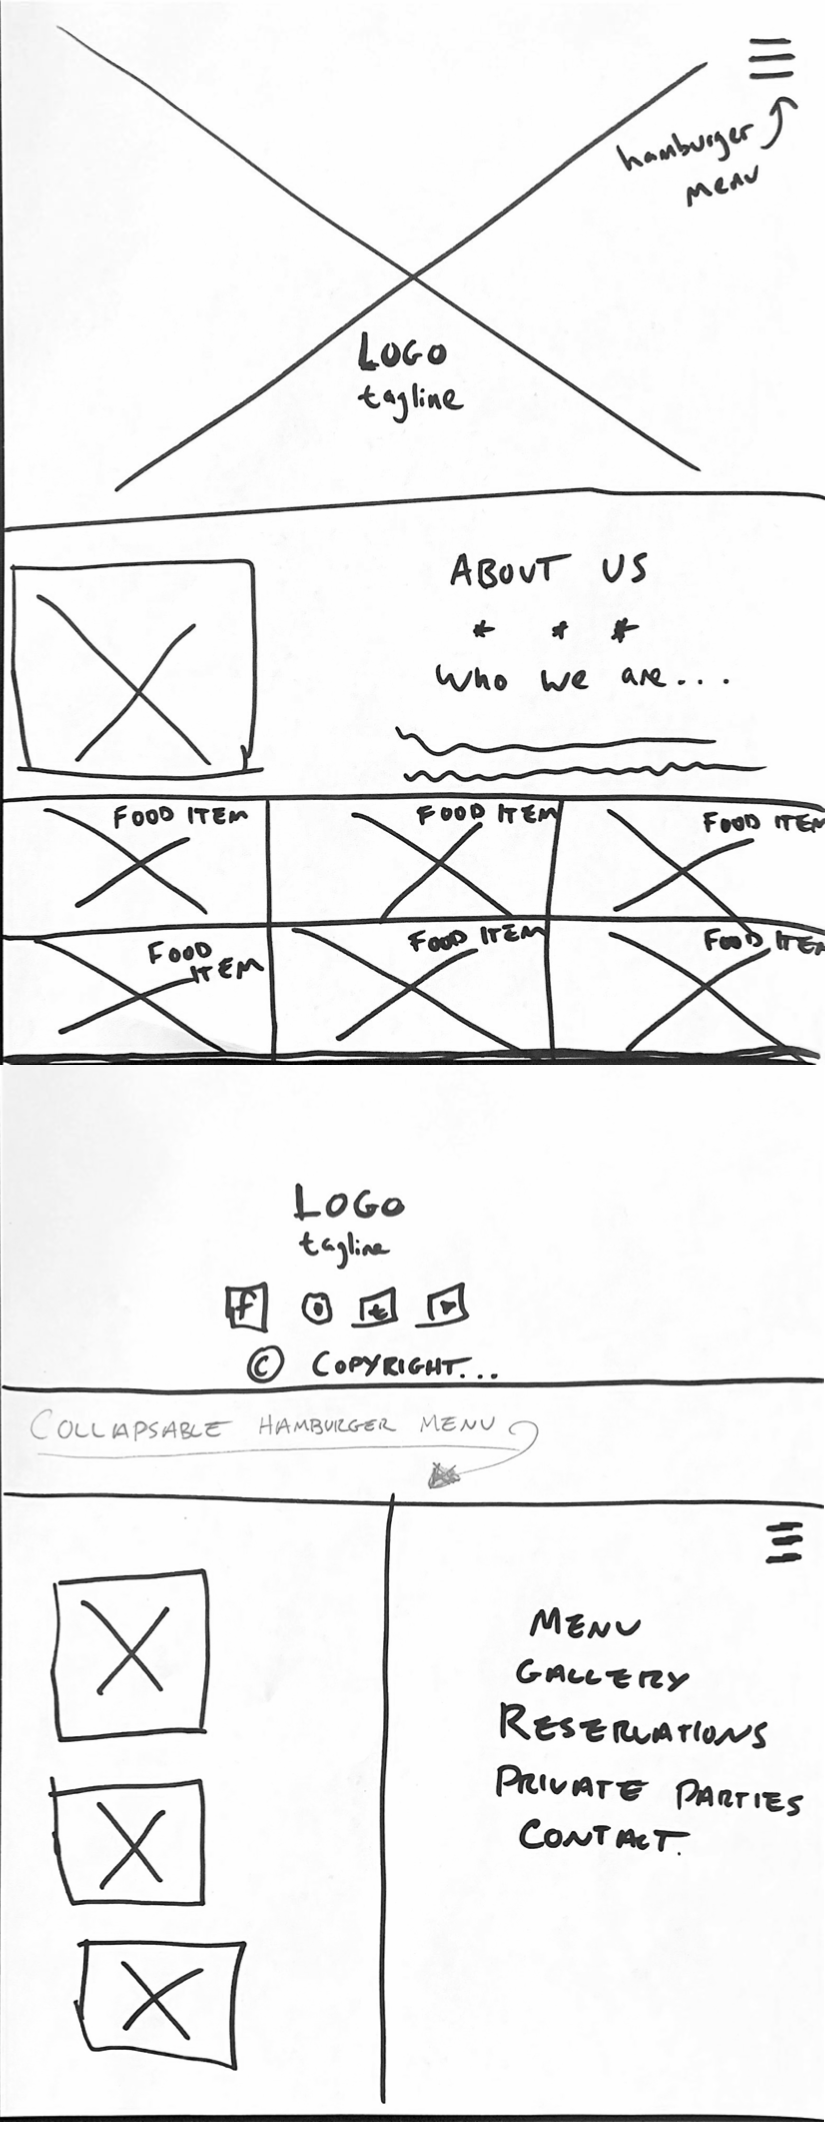 hamburger
menu
LOGO
tagline
ABOUT US
* * *
Who we are...
FOOD ITEM
FOOD ITEM
FOOD ITEM
FOOD
ITEM
FOOD ITEM
FOOD ITEM
LOGO
tagline
f
t
© COPYRIGHT...
COLLAPSABLE HAMBURGER MENU
MENU
GALLERY
RESERVATIONS
PRIVATE PARTIES
CONTACT.